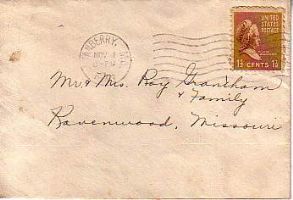 NBERRY,
NOV
UNITED
STATES
POSTAGE
1½ CENTS 1½
Mr & Mrs. Roy Grantham
& Family
Ravenwood, Missouri